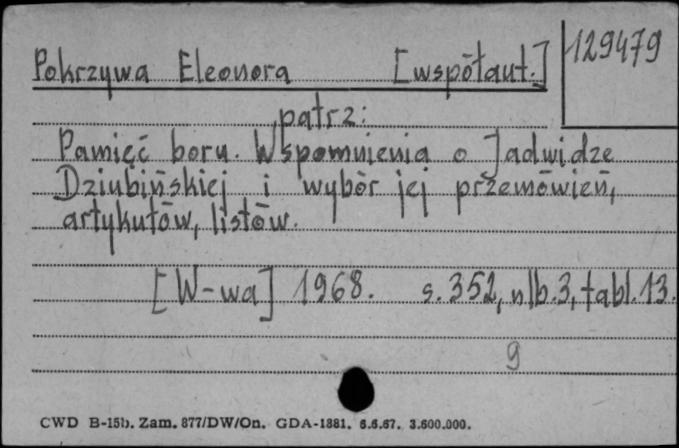 Pokrzywa Eleonora [współaut.] 129479
patrz:
Pamięć boru. Wspomnienia o Jadwidze
Dziubińskiej i wybór jej przemówień,
artykułów, listów.
[W-wa] 1968. s. 352, nlb. 3, tabl. 13.
9
CWD B-15b. Zam. 877/DW/On. GDA-1881. 6.6.67. 3.600.000.